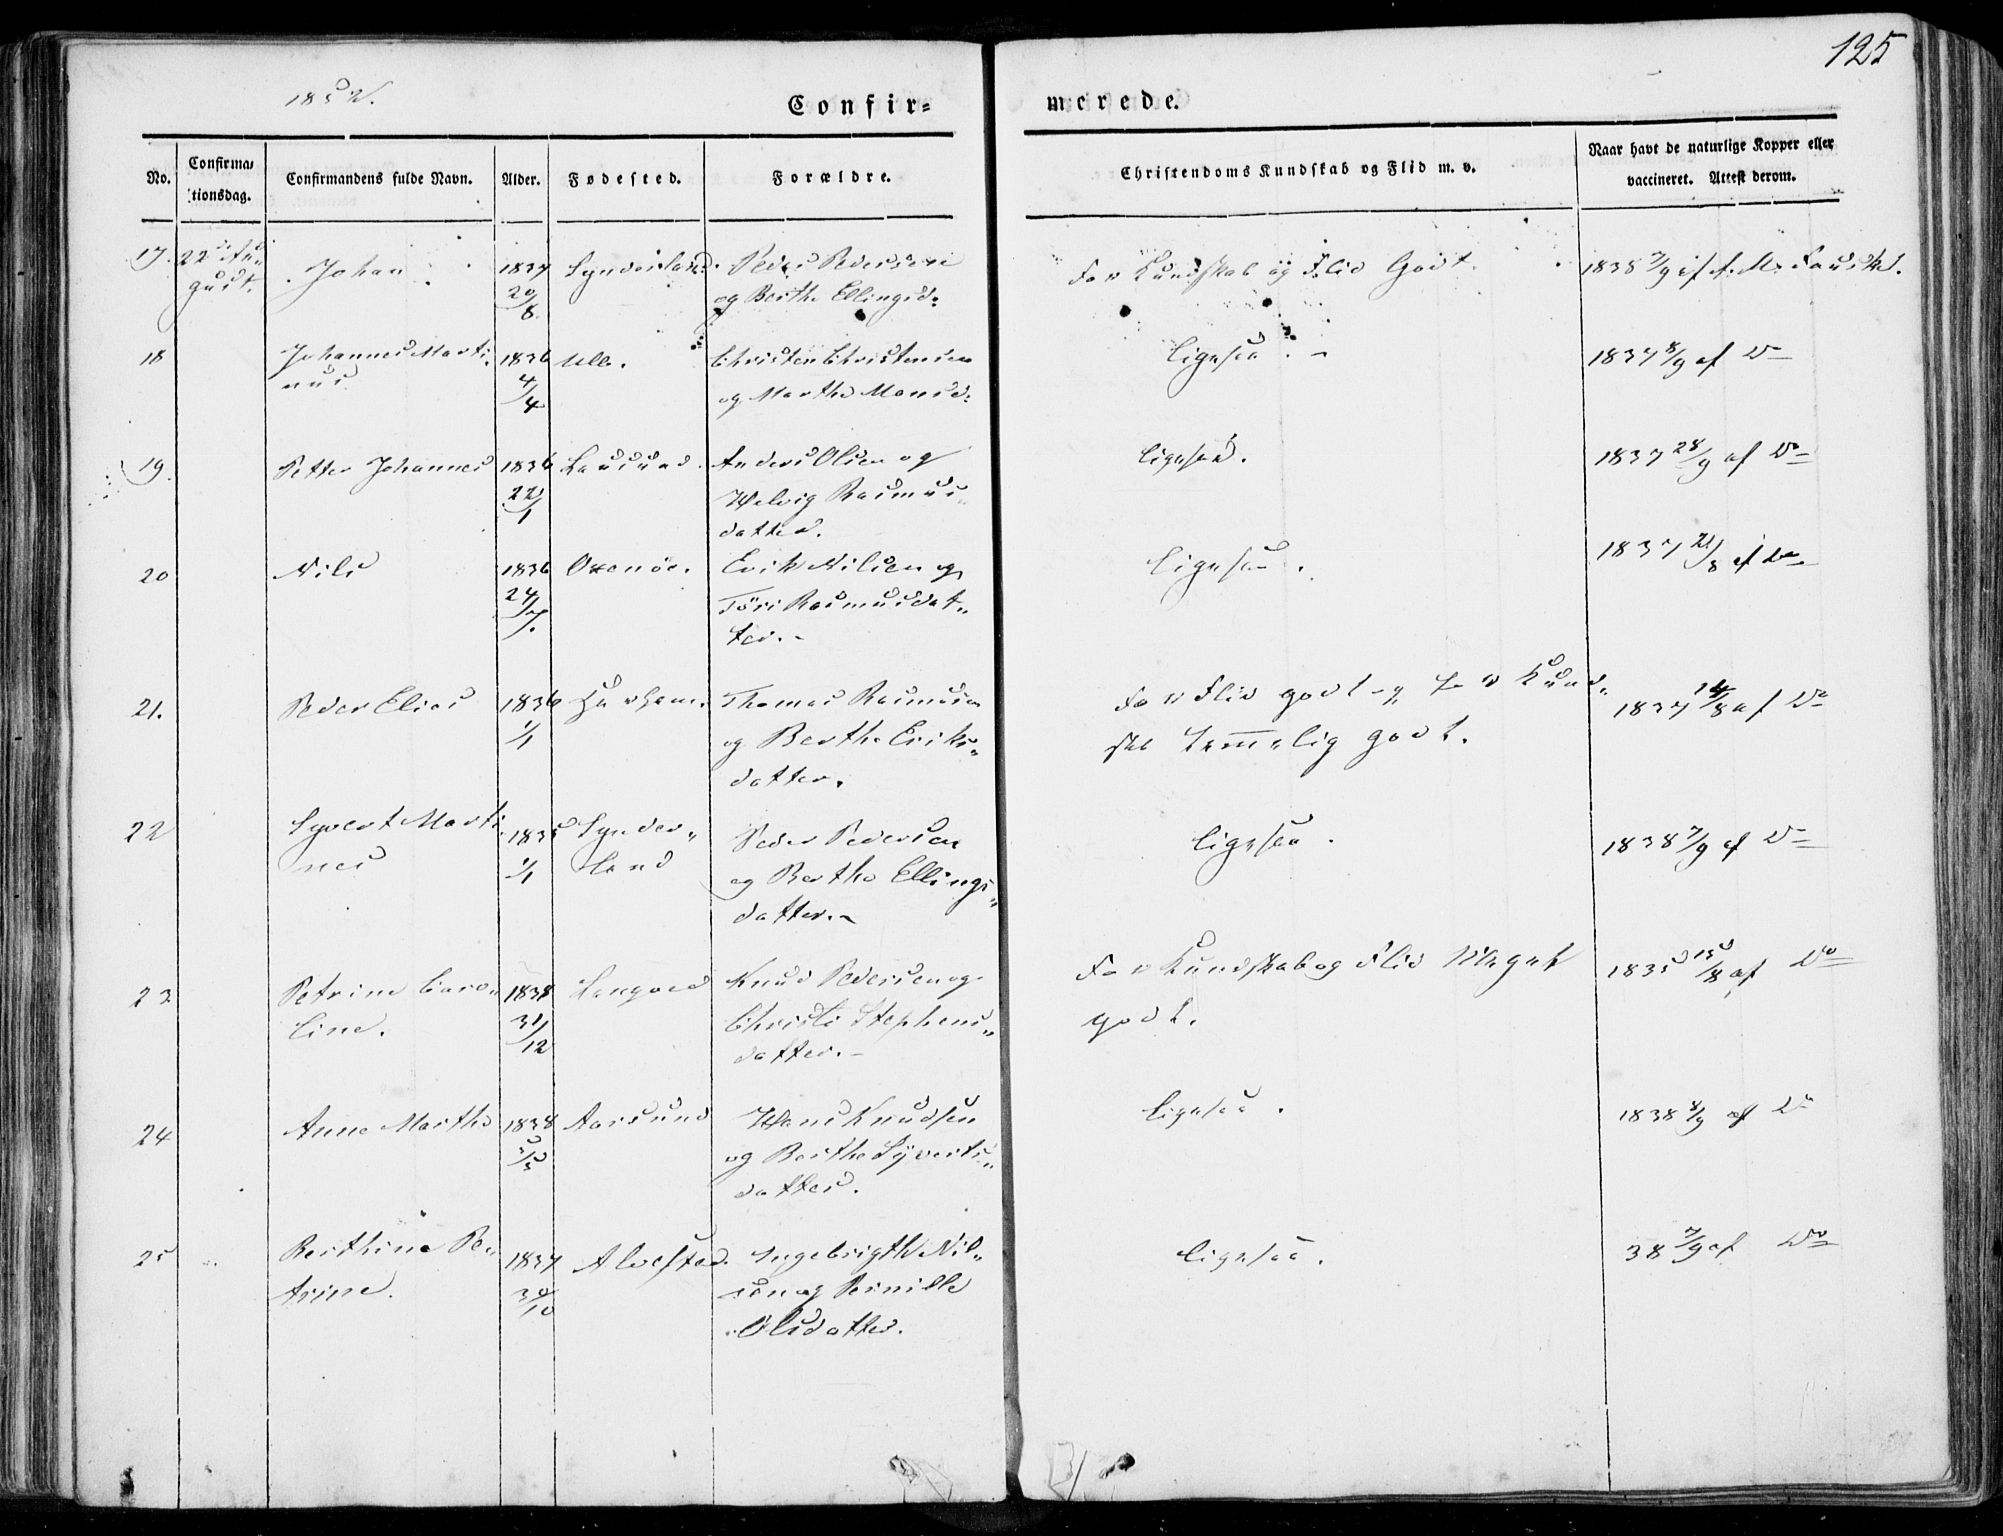 125
1852.
Confir=
merede.
No.
Confirma=
tionsdag.
Confirmandens fulde Navn.
Alder.
Fødested.
Forældre.
Christendoms Kundskab og Flid m. v.
Naar havt de naturlige Kopper eller
vaccineret. Attest derom.
17. 22 Au=
gust.
Johan
1837
20/8
Synderland.
Peder Pedersen
og Berthe Ellingsd:
For Kundskab og Flid Godt.
1838 7/9 af A. M. Fauske.
18
Johannes Marti=
nus
1836
4/4
Ulle.
Christen Christensen
og Marthe Monsd:
ligesaa.
1837 8/9 af Do
19.
Petter Johannes
1836
22/1
Anders Olsen og
Helvig Rasmus=
datter.
ligesaa.
1837 28/9 af Do
20
Nils
1836
24/7.
Oxenöe.
Erik Nilsen og
Töri Rasmusdat=
ter.
ligesaa.
1837 21/8 af Do
21.
Peder Elias
1836
1/1
Harham.
Thomas Rasmusen
og Berthe Eriks=
datter.
For Flid godt og for Kund=
skab temmelig godt.
1837 14/8 af Do
22
Syvert Marti=
nus
1835
1/1
Synder=
land
Peder Pedersen
og Berthe Ellings=
datter.
ligesaa.
1838 7/9 af Do
23
Petrine Caro=
line.
1834
31/12
Knud Pedersen og
Christi Stephens=
datter.
For Kundskab og Flid Meget
godt.
1835 15/8 af Do
24
Anne Marthe
1838
5/5
Aarsund
Hans Knudsen
og Berthe Syverts=
datter.
ligesaa.
1838 8/9 af Do
25
Berthine Pe=
trine.
1837
30/10
Alvestad.
Ingebrigth Nil=
sen og Pernille
Olsdatter.
ligesaa.
38 7/9 af Do